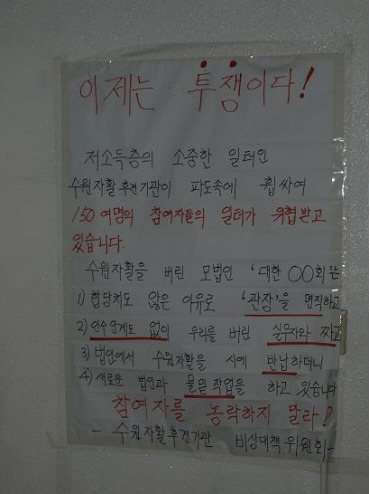 이제는 투쟁이다!
저소득층의 소중한 일터인
수원자활후견기관이 파도속에 휩싸여
150여명의 참여자들의 일터가 위협받고
있습니다.
수원자활을 버린 모법인 '대한○○회'는
1) 합당치도 않은 이유로 '관장'을 면직하고
2) 인수인계도 없이 우리를 버린 실무자와 짜고
3) 법인에서 수원자활을 시에 반납하더니
4) 새로운 법인과 물밑작업을 하고 있습니다
참여자를 농락하지 말라!
- 수원자활후견기관 비상대책위원회 -